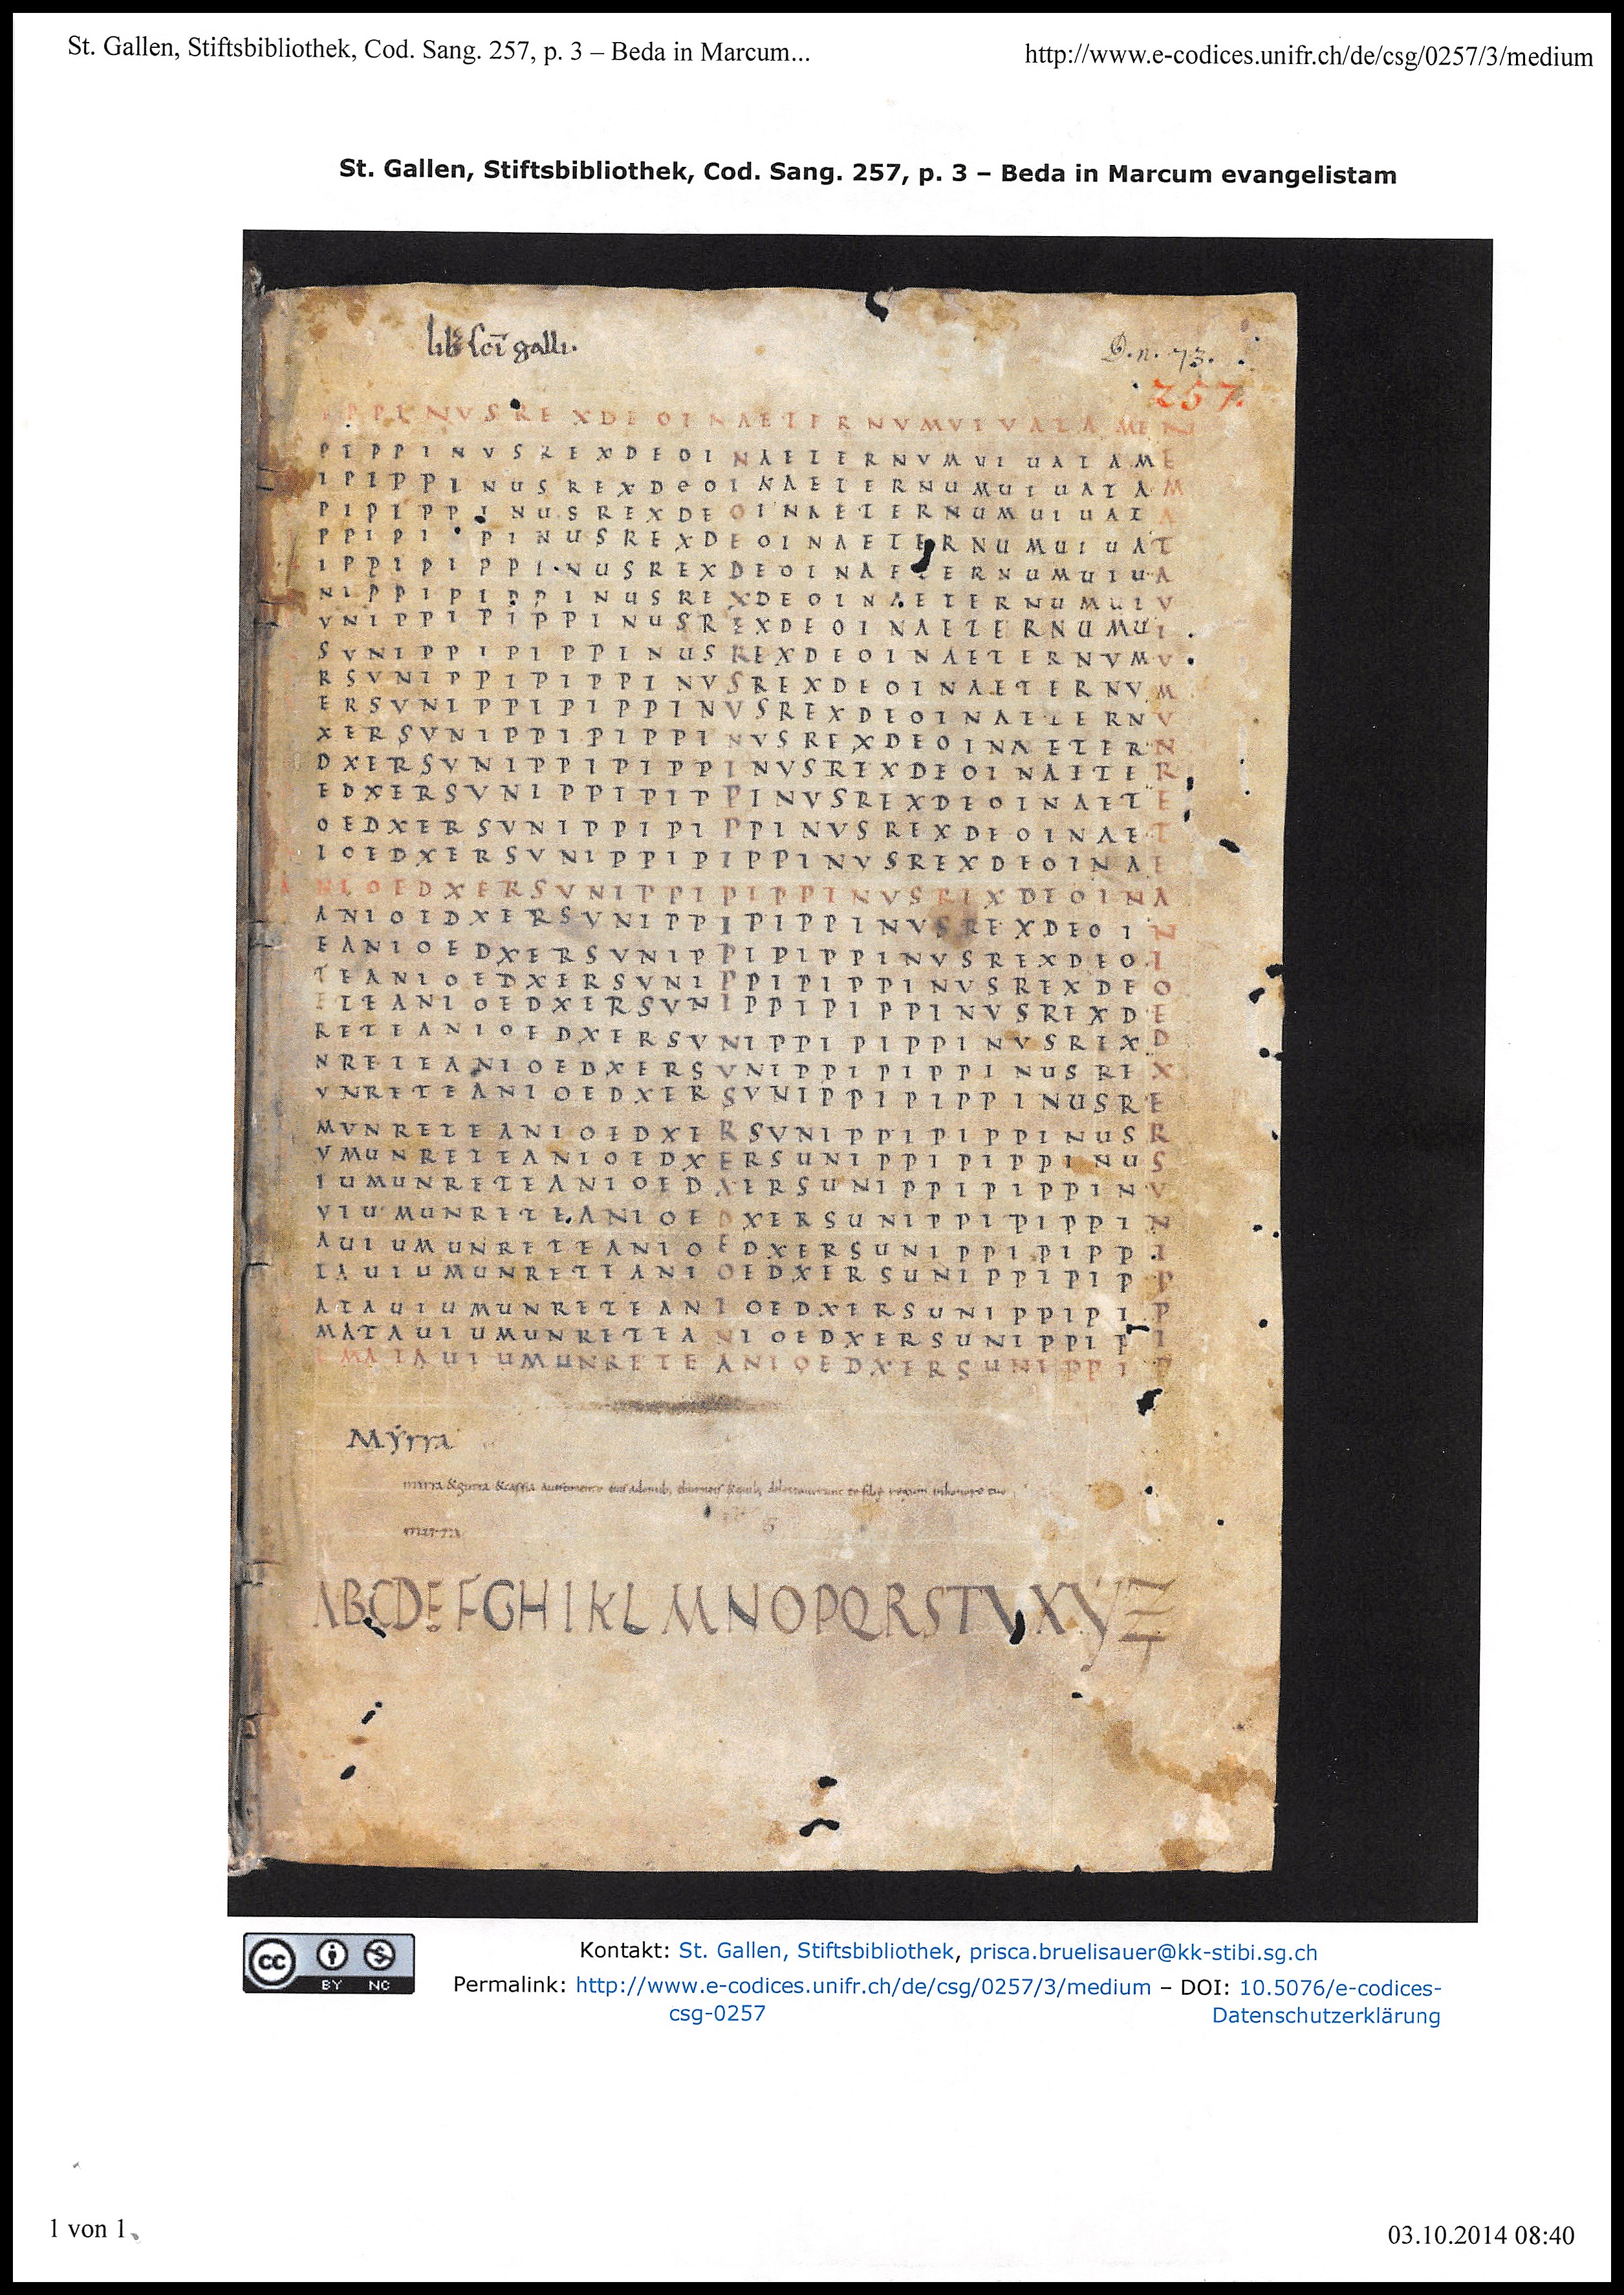 St. Gallen, Stiftsbibliothek, Cod. Sang. 257, p. 3 – Beda in Marcum...
http://www.e-codices.unifr.ch/de/csg/0257/3/medium
St. Gallen, Stiftsbibliothek, Cod. Sang. 257, p. 3 – Beda in Marcum evangelistam
lib sci galli.
D.n. 73.
257.
IPPINVSREXDEOINAETERNVMVIVATAMEN
PIPPINVSREXDEOINAETERNVMUIUATAME
IPIPPINUSREXDEOINAETERNUMUIUATAM
PIPIPPINUSREXDEOINAETERNUMUIUATA
PPIPIPINUSREXDEOINAETERNUMUIUAT
IPPIPIPPINUSREXDEOINAETERNUMUIUA
NIPPIPIPPINUSREXDEOINAETERNUMUIV
VNIPPIPIPPINUSREXDEOINAETERNUMUI
SVNIPPIPIPPINUSREXDEOINAETERNVMV
RSVNIPPIPIPPINVSREXDEOINAETERNVM
ERSVNIPPIPIPPINVSREXDEOINAETERNV
XERSVNIPPIPIPPINVSREXDEOINAETERN
DXERSVNIPPIPIPPINVSREXDEOINAETER
EDXERSVNIPPIPIPPINVSREXDEOINAETE
OEDXERSVNIPPIPIPPINVSREXDEOINAET
IOEDXERSVNIPPIPIPPINVSREXDEOINAE
NIOEDXERSVNIPPIPIPPINVSREXDEOINA
ANIOEDXERSVNIPPIPIPPINVSREXDEOIN
EANIOEDXERSVNIPPIPIPPINVSREXDEOI
TEANIOEDXERSVNIPPIPIPPINVSREXDEO
ETEANIOEDXERSVNIPPIPIPPINVSREXDE
RETEANIOEDXERSVNIPPIPIPPINVSREXD
NRETEANIOEDXERSVNIPPIPIPPINUSREX
VNRETEANIOEDXERSVNIPPIPIPPINUSRE
MVNRETEANIOEDXERSVNIPPIPIPPINUSR
VMUNRETEANIOEDXERSUNIPPIPIPPINUS
IUMUNRETEANIOEDXERSUNIPPIPIPPINV
VIUMUNRETEANIOEDXERSUNIPPIPIPPIN
AUIUMUNRETEANIOEDXERSUNIPPIPIPPI
TAUIUMUNRETEANIOEDXERSUNIPPIPIPP
ATAUIUMUNRETEANIOEDXERSUNIPPIPIP
MATAUIUMUNRETEANIOEDXERSUNIPPIPI
EMATAUIUMUNRETEANIOEDXERSUNIPPIP
Myrra
mirra & gutta & cassia
ABCDEFGHIKLMNOPQRSTVXYZ
cc BY NC
Kontakt: St. Gallen, Stiftsbibliothek, prisca.bruelisauer@kk-stibi.sg.ch
Permalink: http://www.e-codices.unifr.ch/de/csg/0257/3/medium – DOI: 10.5076/e-codices-
csg-0257
Datenschutzerklärung
1 von 1
03.10.2014 08:40